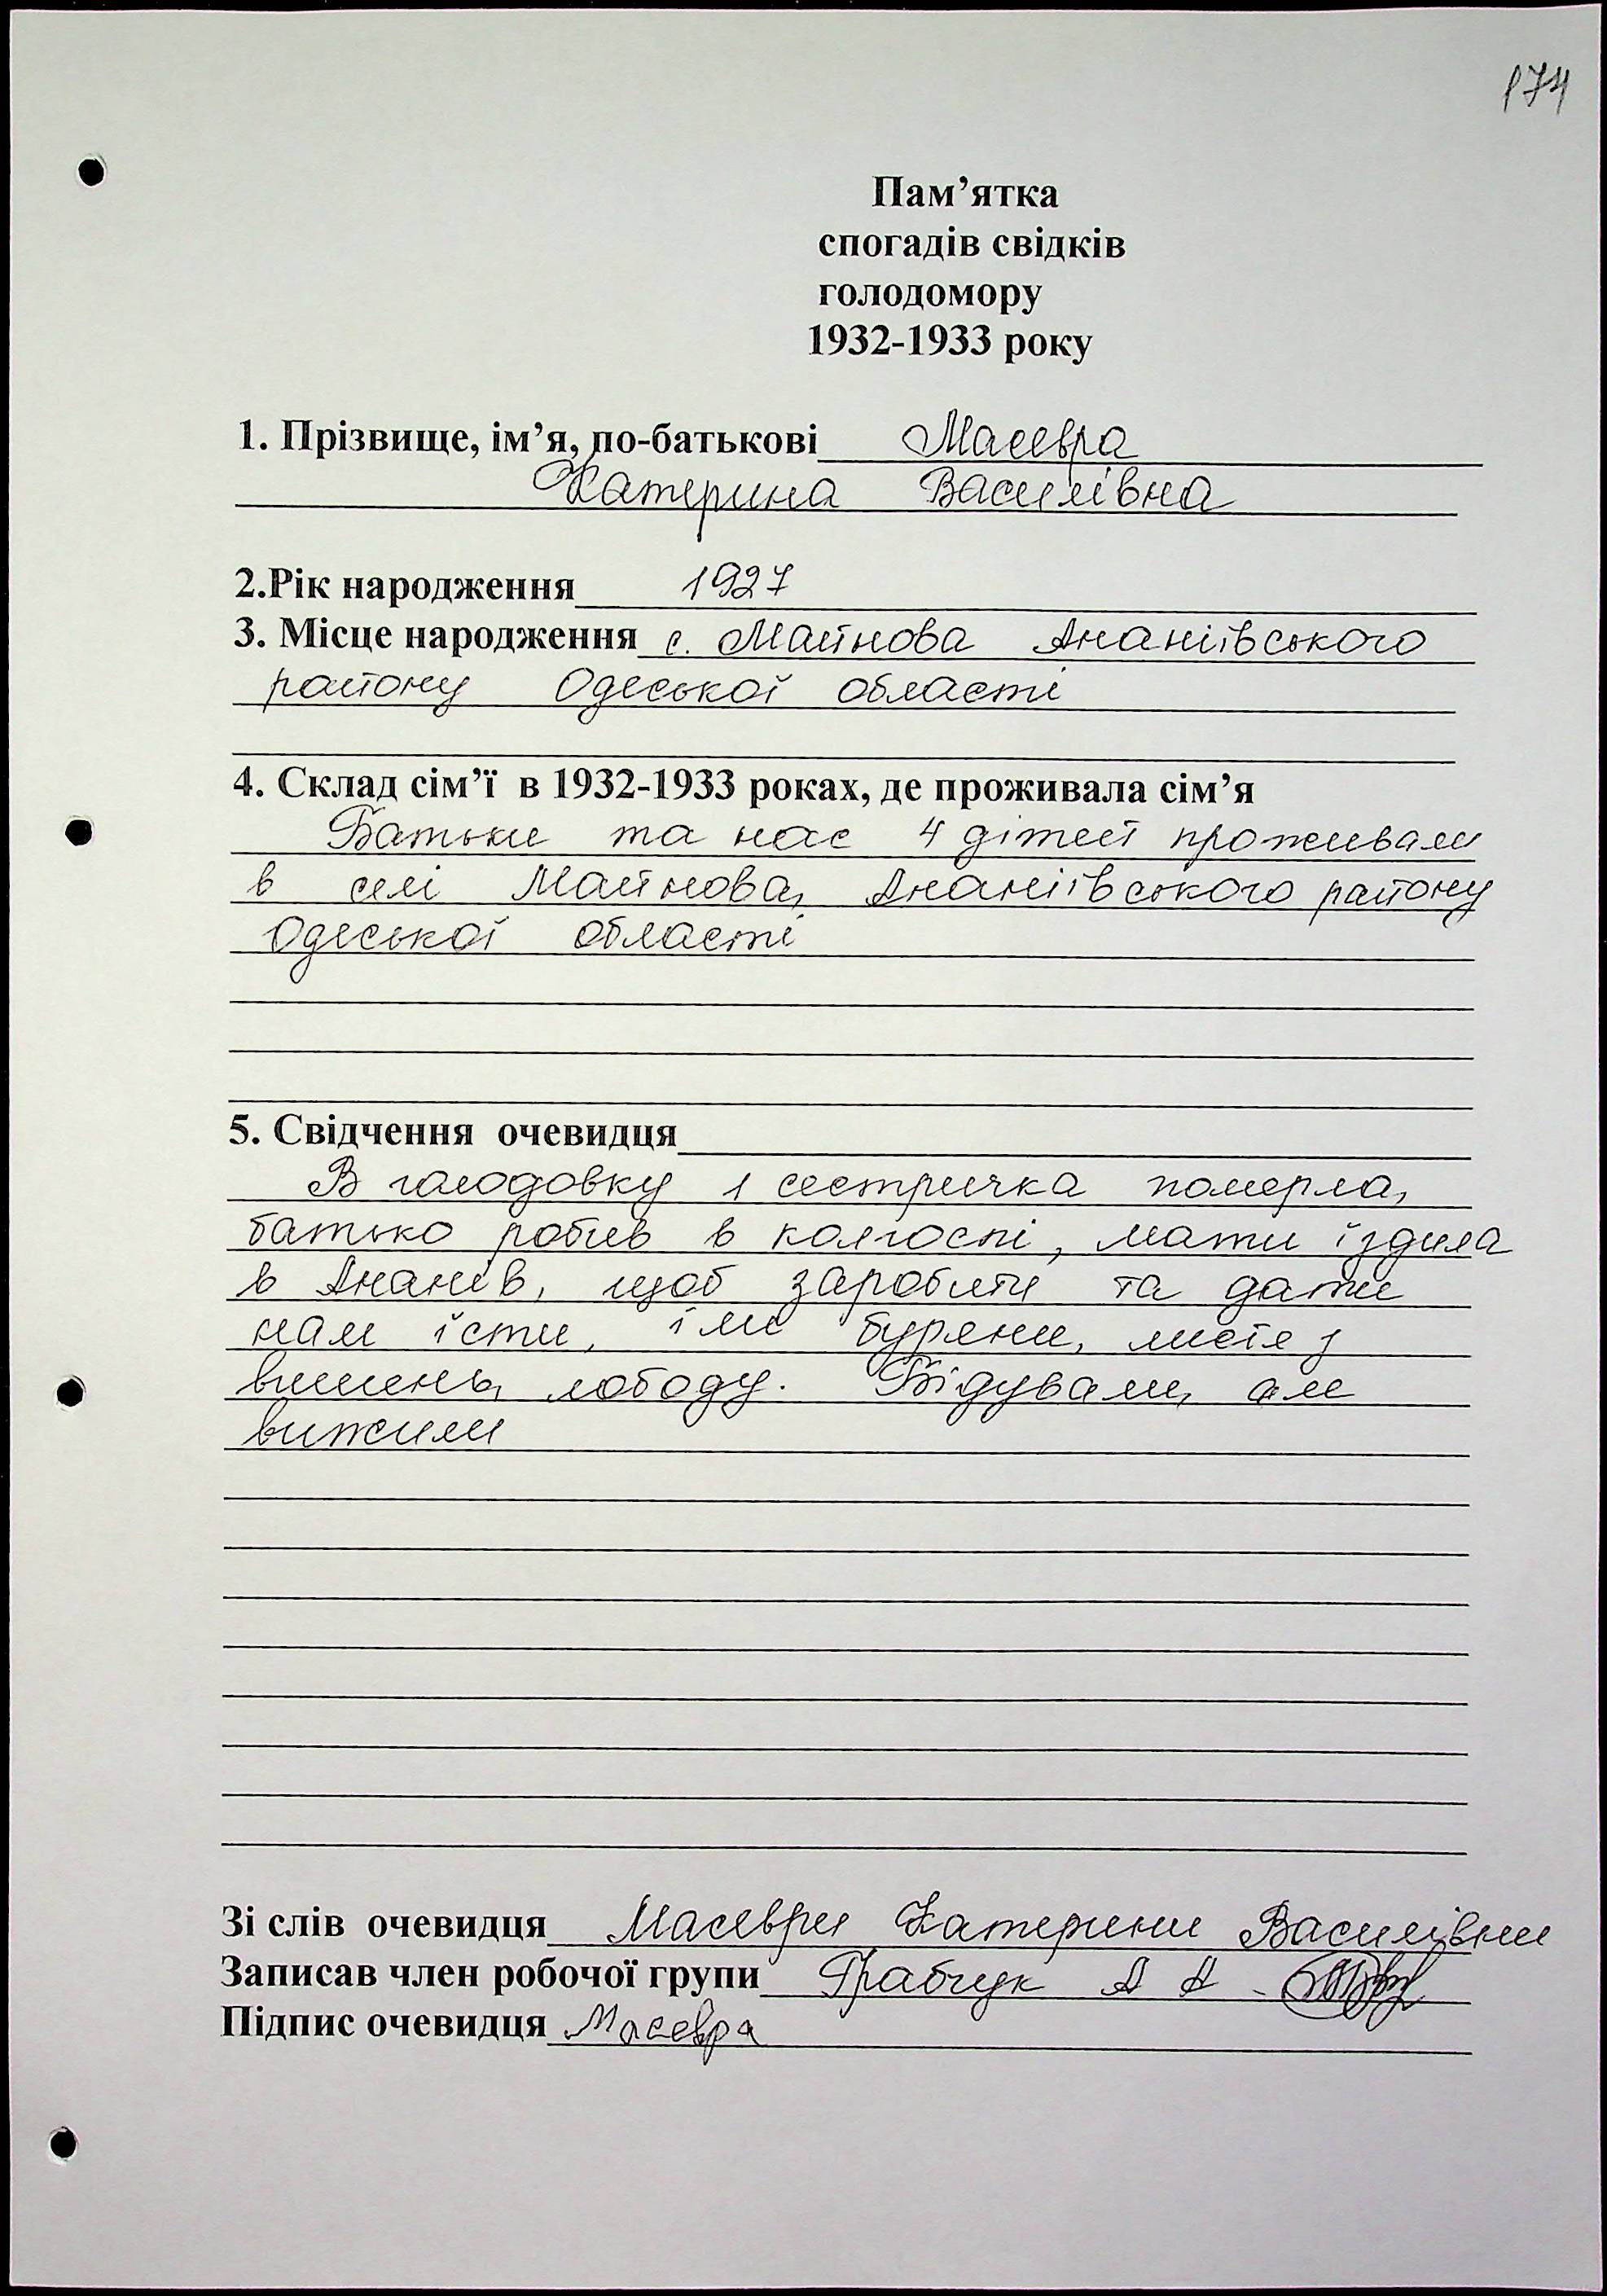 174
Пам’ятка
спогадів свідків
голодомору
1932-1933 року
1. Прізвище, ім’я, по-батькові Масевра
Катерина Василівна
2.Рік народження 1927
3. Місце народження с. Майнова Ананіївського
району Одеської області
4. Склад сім’ї в 1932-1933 роках, де проживала сім’я
Батьки та нас 4 дітей проживали
в селі Майнова, Ананіївського району
Одеської області
5. Свідчення очевидця
В голодовку 1 сестричка померла,
батько робив в колгоспі, мати їздила
в Ананів, щоб заробити та дати
нам їсти, їли буряни, листя з
вишень, лободу. Бідували, але
вижили
Зі слів очевидця Масеври Катерини Василівни
Записав член робочої групи Грабчук А А
Підпис очевидця Масевра